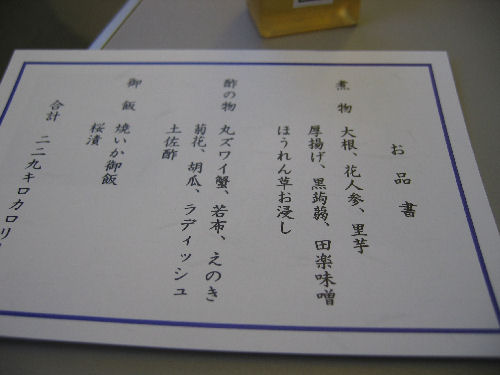 お品書
煮物 大根、花人参、里芋
厚揚げ、黒蒟蒻、田楽味噌
ほうれん草お浸し
酢の物 丸ズワイ蟹、若布、えのき
菊花、胡瓜、ラディッシュ
土佐酢
御飯 焼いか御飯
桜漬
合計 二二九キロカロリ